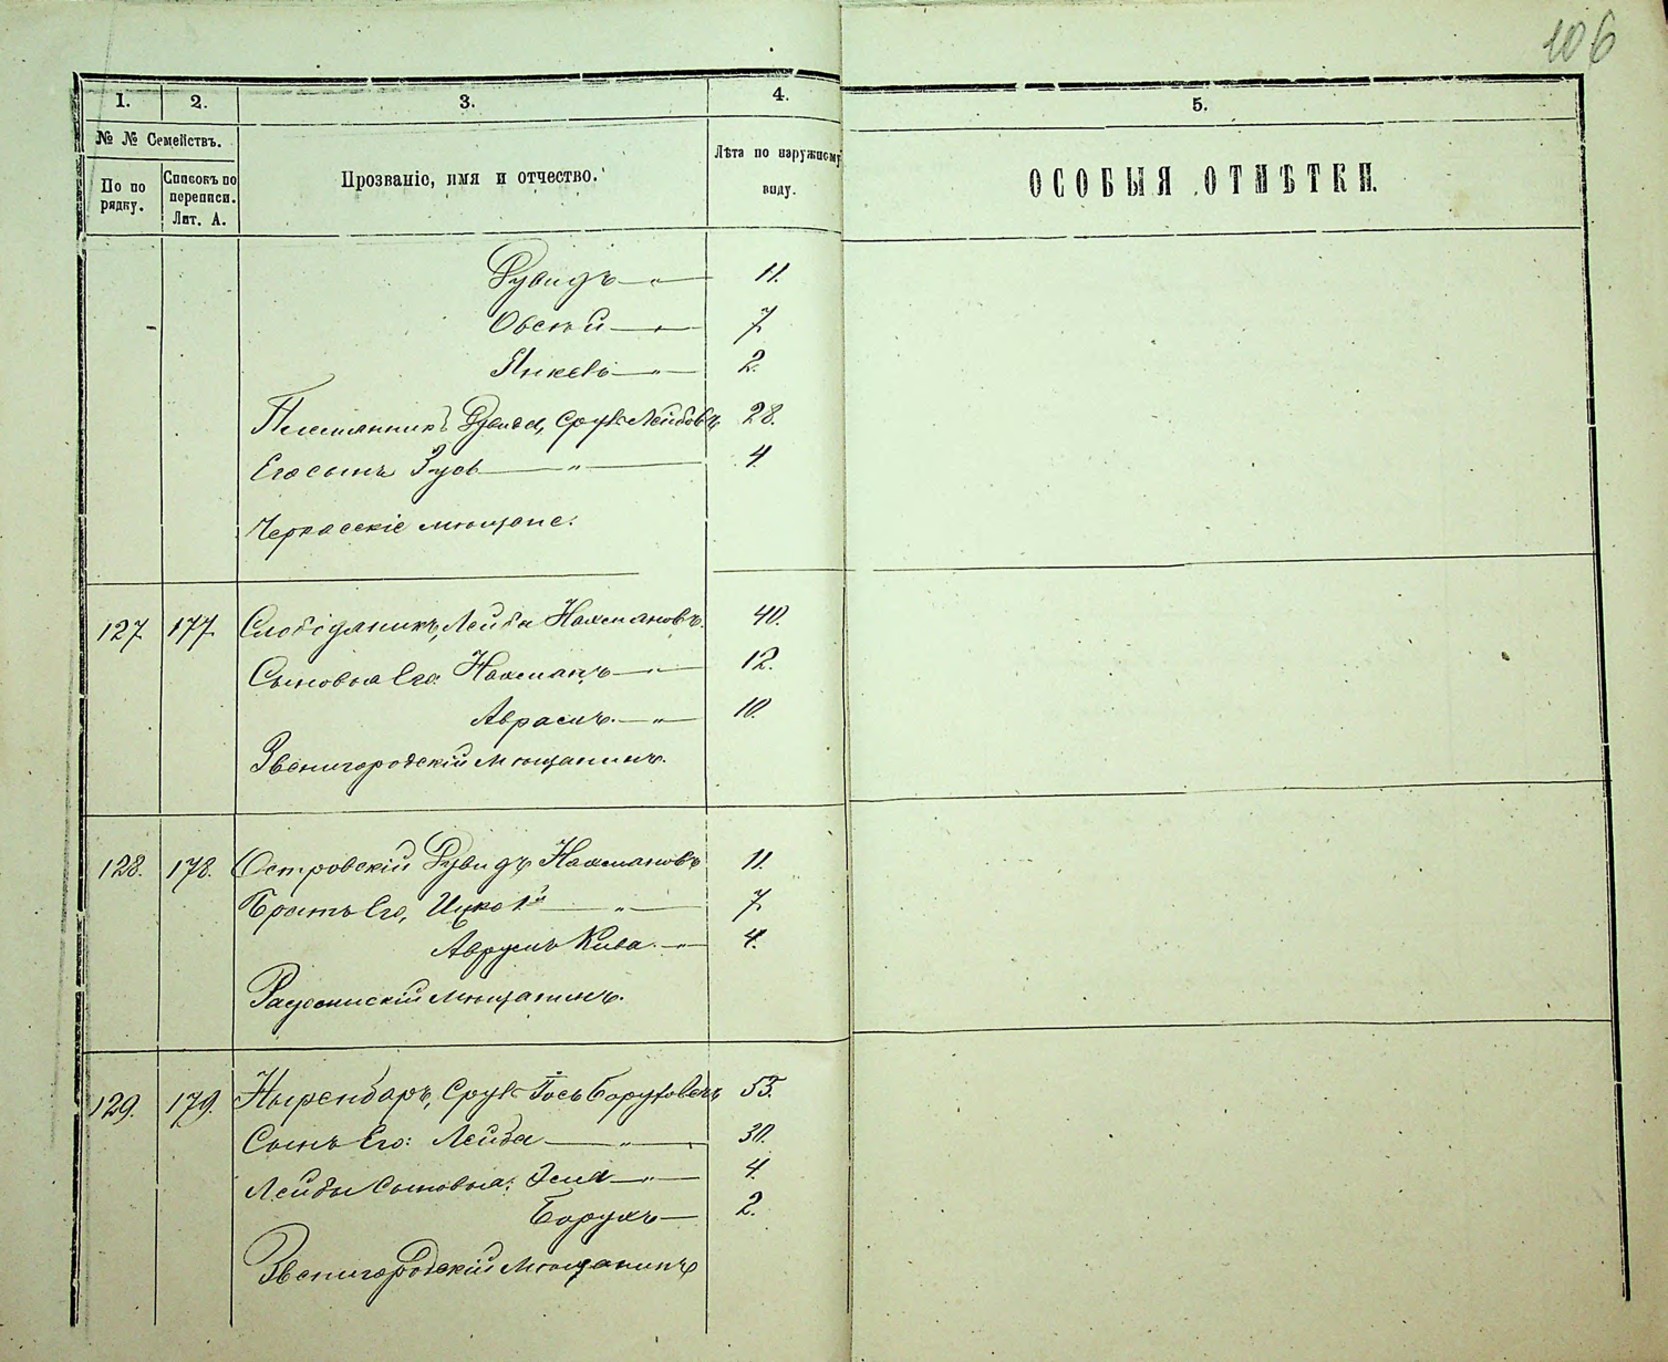 106
1. 2. 3. 4. 5.
№ № Семействъ.
По по рядку.
Списокъ по переписи. Лит. А.
Прозваніе, имя и отчество.
Лѣта по наружному виду.
ОСОБЫЯ ОТМѢТКИ.
Дувидъ — " — 11.
Овсѣй — " — 7
Янкевъ — " — 2.
Племянникъ Дувида, Срулъ Лейбовъ 28.
Его сынъ Зусъ — " — 4.
Черкасскіе мѣщане.
127 177 Слободяникъ, Лейба Нахмановъ. 40.
Сыновья Его: Нахманъ — " — 12.
Аврамъ. — " — 10.
Звенигородскій мѣщанинъ.
128. 178. Островскій Дувидъ Нахмановъ 11.
Братъ Его, Ицко — " — 7
Аврумъ Кива. — " — 4.
мѣщанинъ.
129. 179. Сруль Іось Боруховъ 55.
Сынъ Его: Лейба — " — 30.
Лейбы сыновья: — " — 4.
Борухъ — 2.
Звенигородскій мѣщанинъ